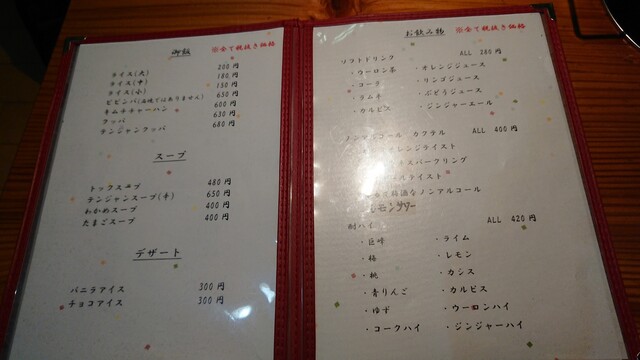 御飯 ※全て税抜き価格
ライス(大) 200円
ライス(中) 180円
ライス(小) 150円
ビビンバ(石焼ではありません) 650円
キムチチャーハン 600円
クッパ 630円
テンジャンクッパ 680円
スープ
トックスープ 480円
テンジャンスープ(辛) 650円
わかめスープ 400円
たまごスープ 400円
デザート
バニラアイス 300円
チョコアイス 300円
お飲み物 ※全て税抜き価格
ソフトドリンク ALL 280円
・ウーロン茶 ・オレンジジュース
・コーラ ・リンゴジュース
・ラムネ ・ぶどうジュース
・カルピス ・ジンジャーエール
ノンアルコール カクテル ALL 400円
レンジテイスト
スパークリング
ルテイスト
梅酒なノンアルコール
レモンサワー
酎ハイ ALL 420円
・巨峰 ・ライム
・梅 ・レモン
・桃 ・カシス
・青りんご ・カルピス
・ゆず ・ウーロンハイ
・コークハイ ・ジンジャーハイ